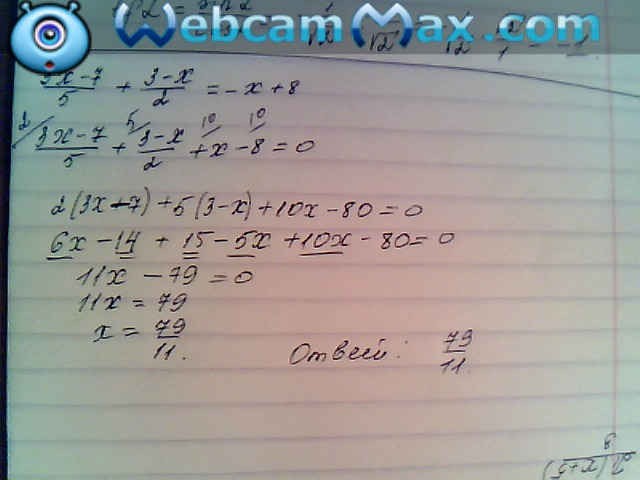 WebcamMax.com
(3x-7)/5 + (3-x)/2 = -x + 8
2/ (3x-7)/5 + 5/ (3-x)/2 + 10/ x - 10/ 8 = 0
2(3x-7)+5(3-x)+10x-80=0
6x-14+15-5x+10x-80=0
11x-79=0
11x=79
x = 79/11.
Ответ: 79/11.